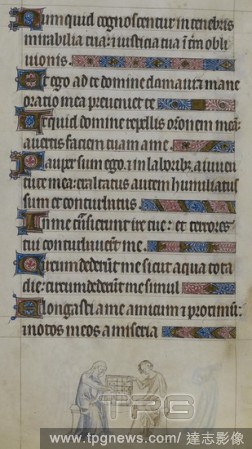 Numquid cognoscentur in tenebris
mirabilia tua: et iusticia tua in terra obli
uionis.
Et ego ad te domine clamaui: et mane
oratio mea preueniet te
Ut quid domine repellis orationem meam:
auertis faciem tuam a me.
Pauper sum ego. et in laboribus a iuuen
tute mea: exaltatus autem humiliatus
sum et conturbatus
In me transierunt ire tue: et terrores
tui conturbauerunt me.
Circumdederunt me sicut aqua tota
die: circumdederunt me simul
Elongasti a me amicum et proximum:
et notos meos a miseria
TPG
www.tpgnews.com/ 達志影像